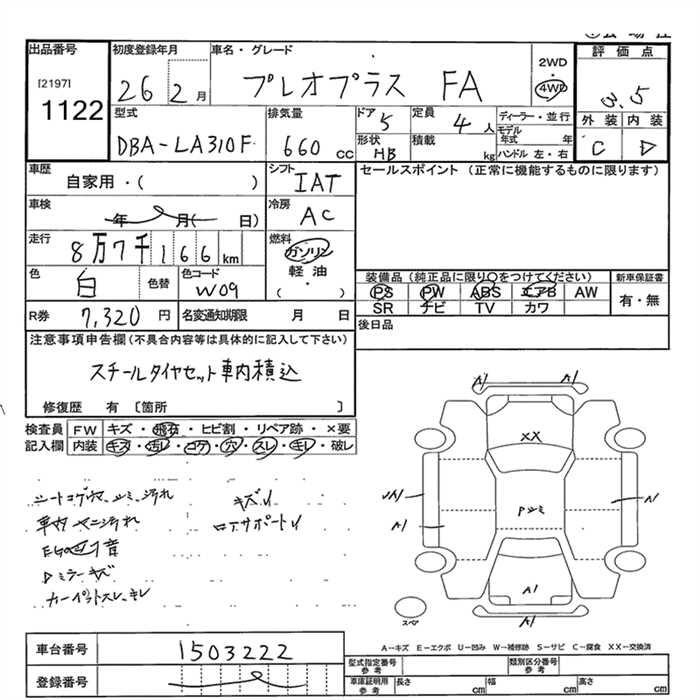 出品番号
[2197]
1122
初度登録年月
26 2月
車名・グレード
プレオプラス FA
2WD
・
4WD
評価点
3.5
型式
DBA-LA310F
排気量
660 CC
ドア
5
定員
4人
ディーラー・並行
モデル年式 年
形状
HB
積載 kg
ハンドル 左・右
外装 内装
C D
車歴
自家用・( )
シフト
IAT
セールスポイント (正常に機能するものに限ります)
車検
年 月( 日)
冷房
AC
走行
8万7千166km
燃料
ガソリン
軽油
( ・ )
色
白
色替
色コード
W09
装備品 (純正品に限り○をつけてください)
PS PW ABS エアB AW
SR ナビ TV カワ
新車保証書
有・無
R券
7,320円
名変通知期限 月 日
後日品
注意事項申告欄(不具合内容等は具体的に記入して下さい)
スチールタイヤセット車内積込
修復歴 有 〔箇所 〕
検査員
記入欄
FW キズ・飛石・ヒビ割・リペア跡・×要
内装 キズ・汚レ・コゲ・穴・スレ・キレ・破レ
キズU
ロアサポートU
Dミラーキズ
カーペットスレ、キレ
A1 A1
XX
A1
A1
A1
A1
スペア
A-キズ E-エクボ U-凹み W-補修跡 S-サビ C-腐食 XX-交換済
車台番号
1503222
登録番号
型式指定番号
参考
類別区分番号
参考
車庫証明用
参考
長さ cm
幅 cm
高さ cm